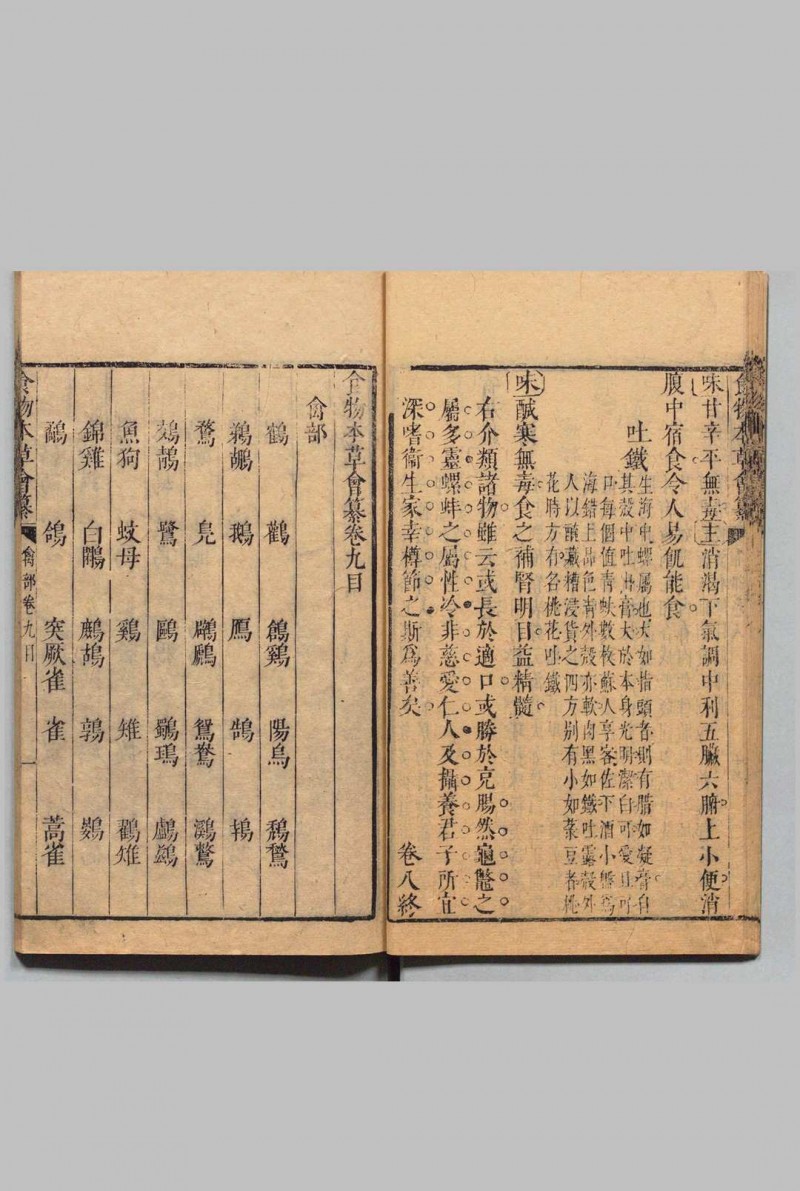 食物本草會纂
味甘辛平無毒主消渴下氣調中利五臟六腑上小便消
腹中宿食令人易飢能食
吐鐵
生海中螺屬也大如指頭者則有脂如凝膏自
其殼中吐出膏大於本身光明潔白可愛且可
口每個值青蚨數枚蘇人享客佐下酒小盤為
海錯上品色青外殼亦軟肉黑如鐵吐露殼外
人以醃藏糟浸貨之四方別有小如菉豆者桃
花時方有名桃花吐鐵
味鹹寒無毒食之補腎明目益精髓
右介類諸物雖云或長於適口或勝於克腸然龜鼈之
屬多靈螺蚌之屬性冷非慈愛仁人及攝養君子所宜
深嗜衞生家幸樽節之斯為善矣
卷八終
食物本草會纂卷九目
禽部
鶴 鸛 鶬鷄 陽烏 鵚鶖
鵜鶘 鵝 鴈 鵠 鴇
鶩 鳧 鸊鷉 鴛鴦 鸂鶒
鵁鶄 鷺 鷗 鸀鳿 鸕鶿
魚狗 蚊母 鷄 雉 鸐雉
錦雞 白鷴 鷓鴣 鶉 鷃
鷸 鴿 突厥雀 雀 蒿雀
食物本草會纂 禽部卷九目 一